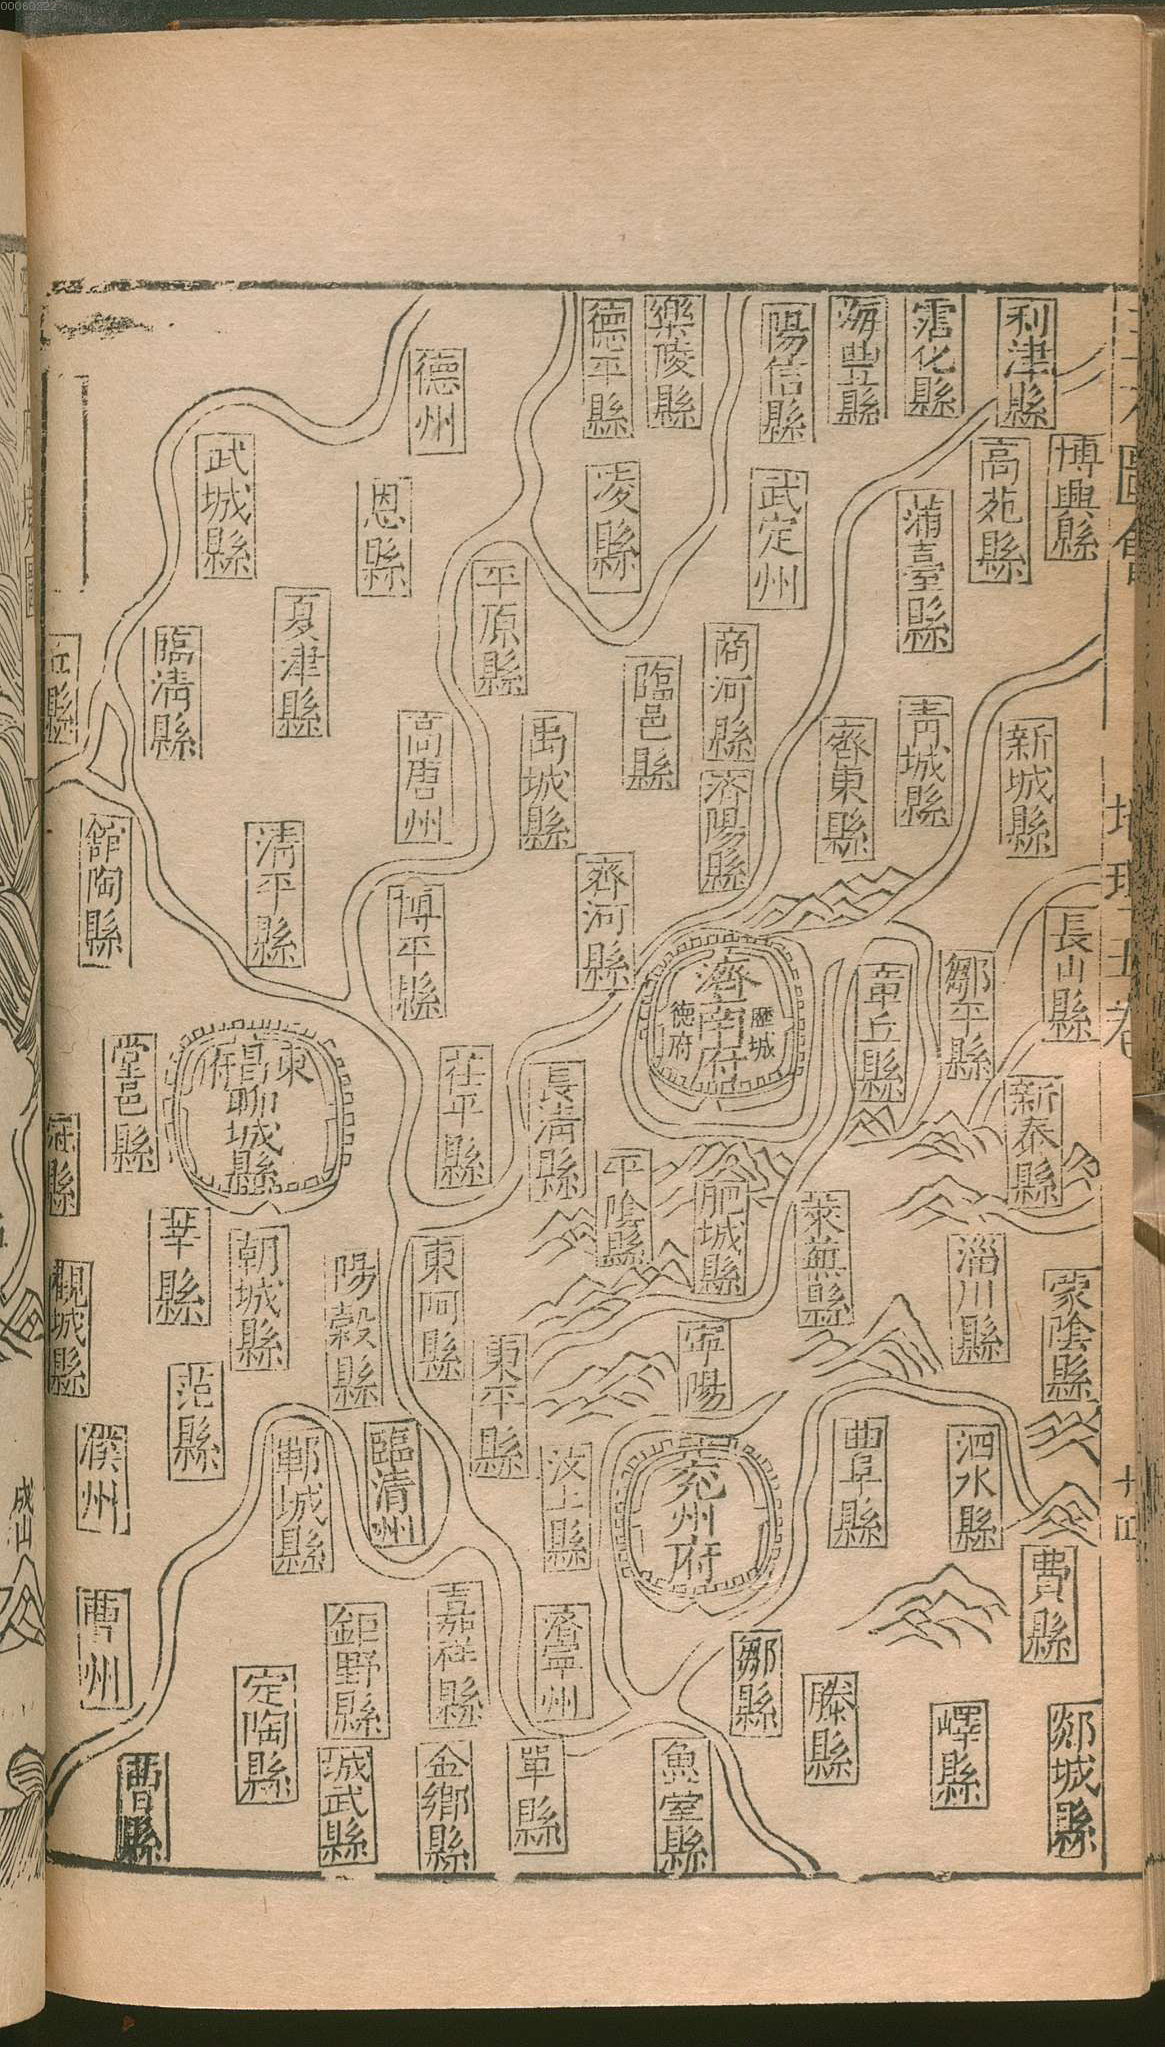 00060222
利津縣
霑化縣
海豐縣
陽信縣
樂陵縣
德平縣
德州
博興縣
高苑縣
蒲臺縣
武定州
凌縣
恩縣
武城縣
平原縣
夏津縣
臨清縣
商河縣
臨邑縣
新城縣
青城縣
齊東縣
濟陽縣
禹城縣
高唐州
清平縣
館陶縣
齊河縣
博平縣
長山縣
鄒平縣
章丘縣
濟南府
歷城
德府
新泰縣
長清縣
茌平縣
東昌府
聊城縣
堂邑縣
冠縣
平陰縣
肥城縣
萊蕪縣
淄川縣
蒙陰縣
東阿縣
陽穀縣
朝城縣
莘縣
觀城縣
寧陽
東平縣
范縣
濮州
臨清州
鄆城縣
汶上縣
兗州府
曲阜縣
泗水縣
費縣
曹州
鉅野縣
嘉祥縣
濟寧州
鄒縣
滕縣
嶧縣
郯城縣
定陶縣
曹縣
城武縣
金鄉縣
單縣
魚臺縣
圖會
地理三卷
十四
成山